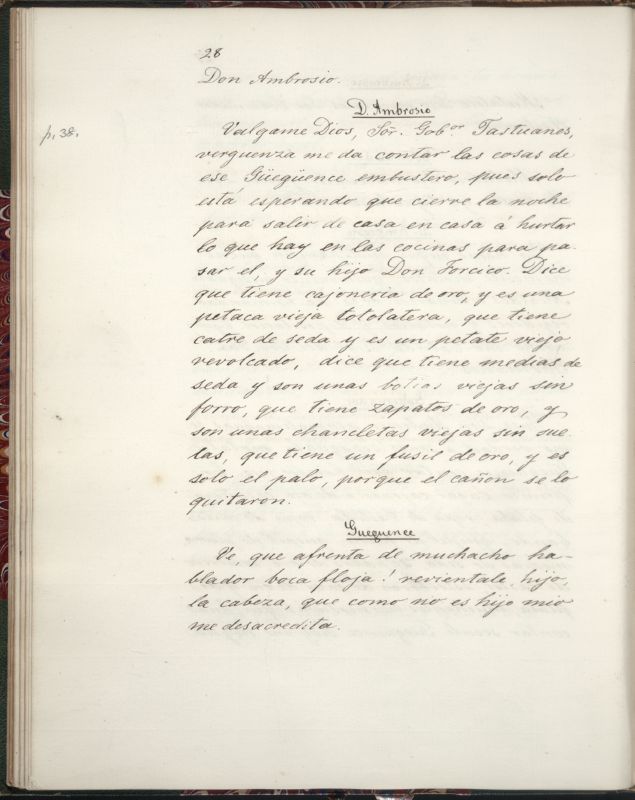 28
Don Ambrosio.
D. Ambrosio
p. 38.
Valgame Dios, Sor. Gobor. Tastuanes,
verguenza me da contar las cosas de
ese Güegüence embustero, pues solo
está esperando que cierre la noche
para salir de casa en casa á hurtar
lo que hay en las cocinas para pa-
sar el, y su hijo Don Forcico. Dice
que tiene cajoneria de oro, y es una
petaca vieja totolatera, que tiene
catre de seda y es un petate viejo
revolcado, dice que tiene medias de
seda y son unas botias viejas sin
forro, que tiene zapatos de oro, y
son unas chancletas viejas sin sue-
las, que tiene un fusil de oro, y es
solo el palo, porque el cañon se lo
quitaron.
Gueguence
Ve, que afrenta de muchacho ha-
blador boca floja! revientale, hijo,
la cabeza, que como no es hijo mio
me desacredita.